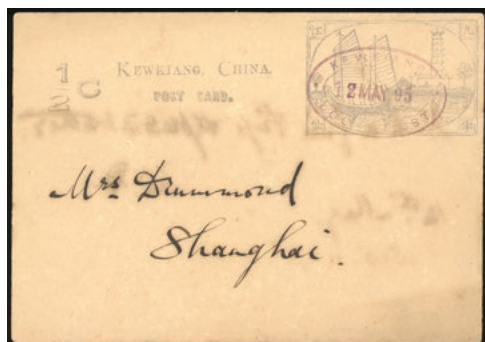 1/2 C
KEWKIANG, CHINA.
POST CARD.
2 MAY 95
Mrs Drummond
Shanghai.